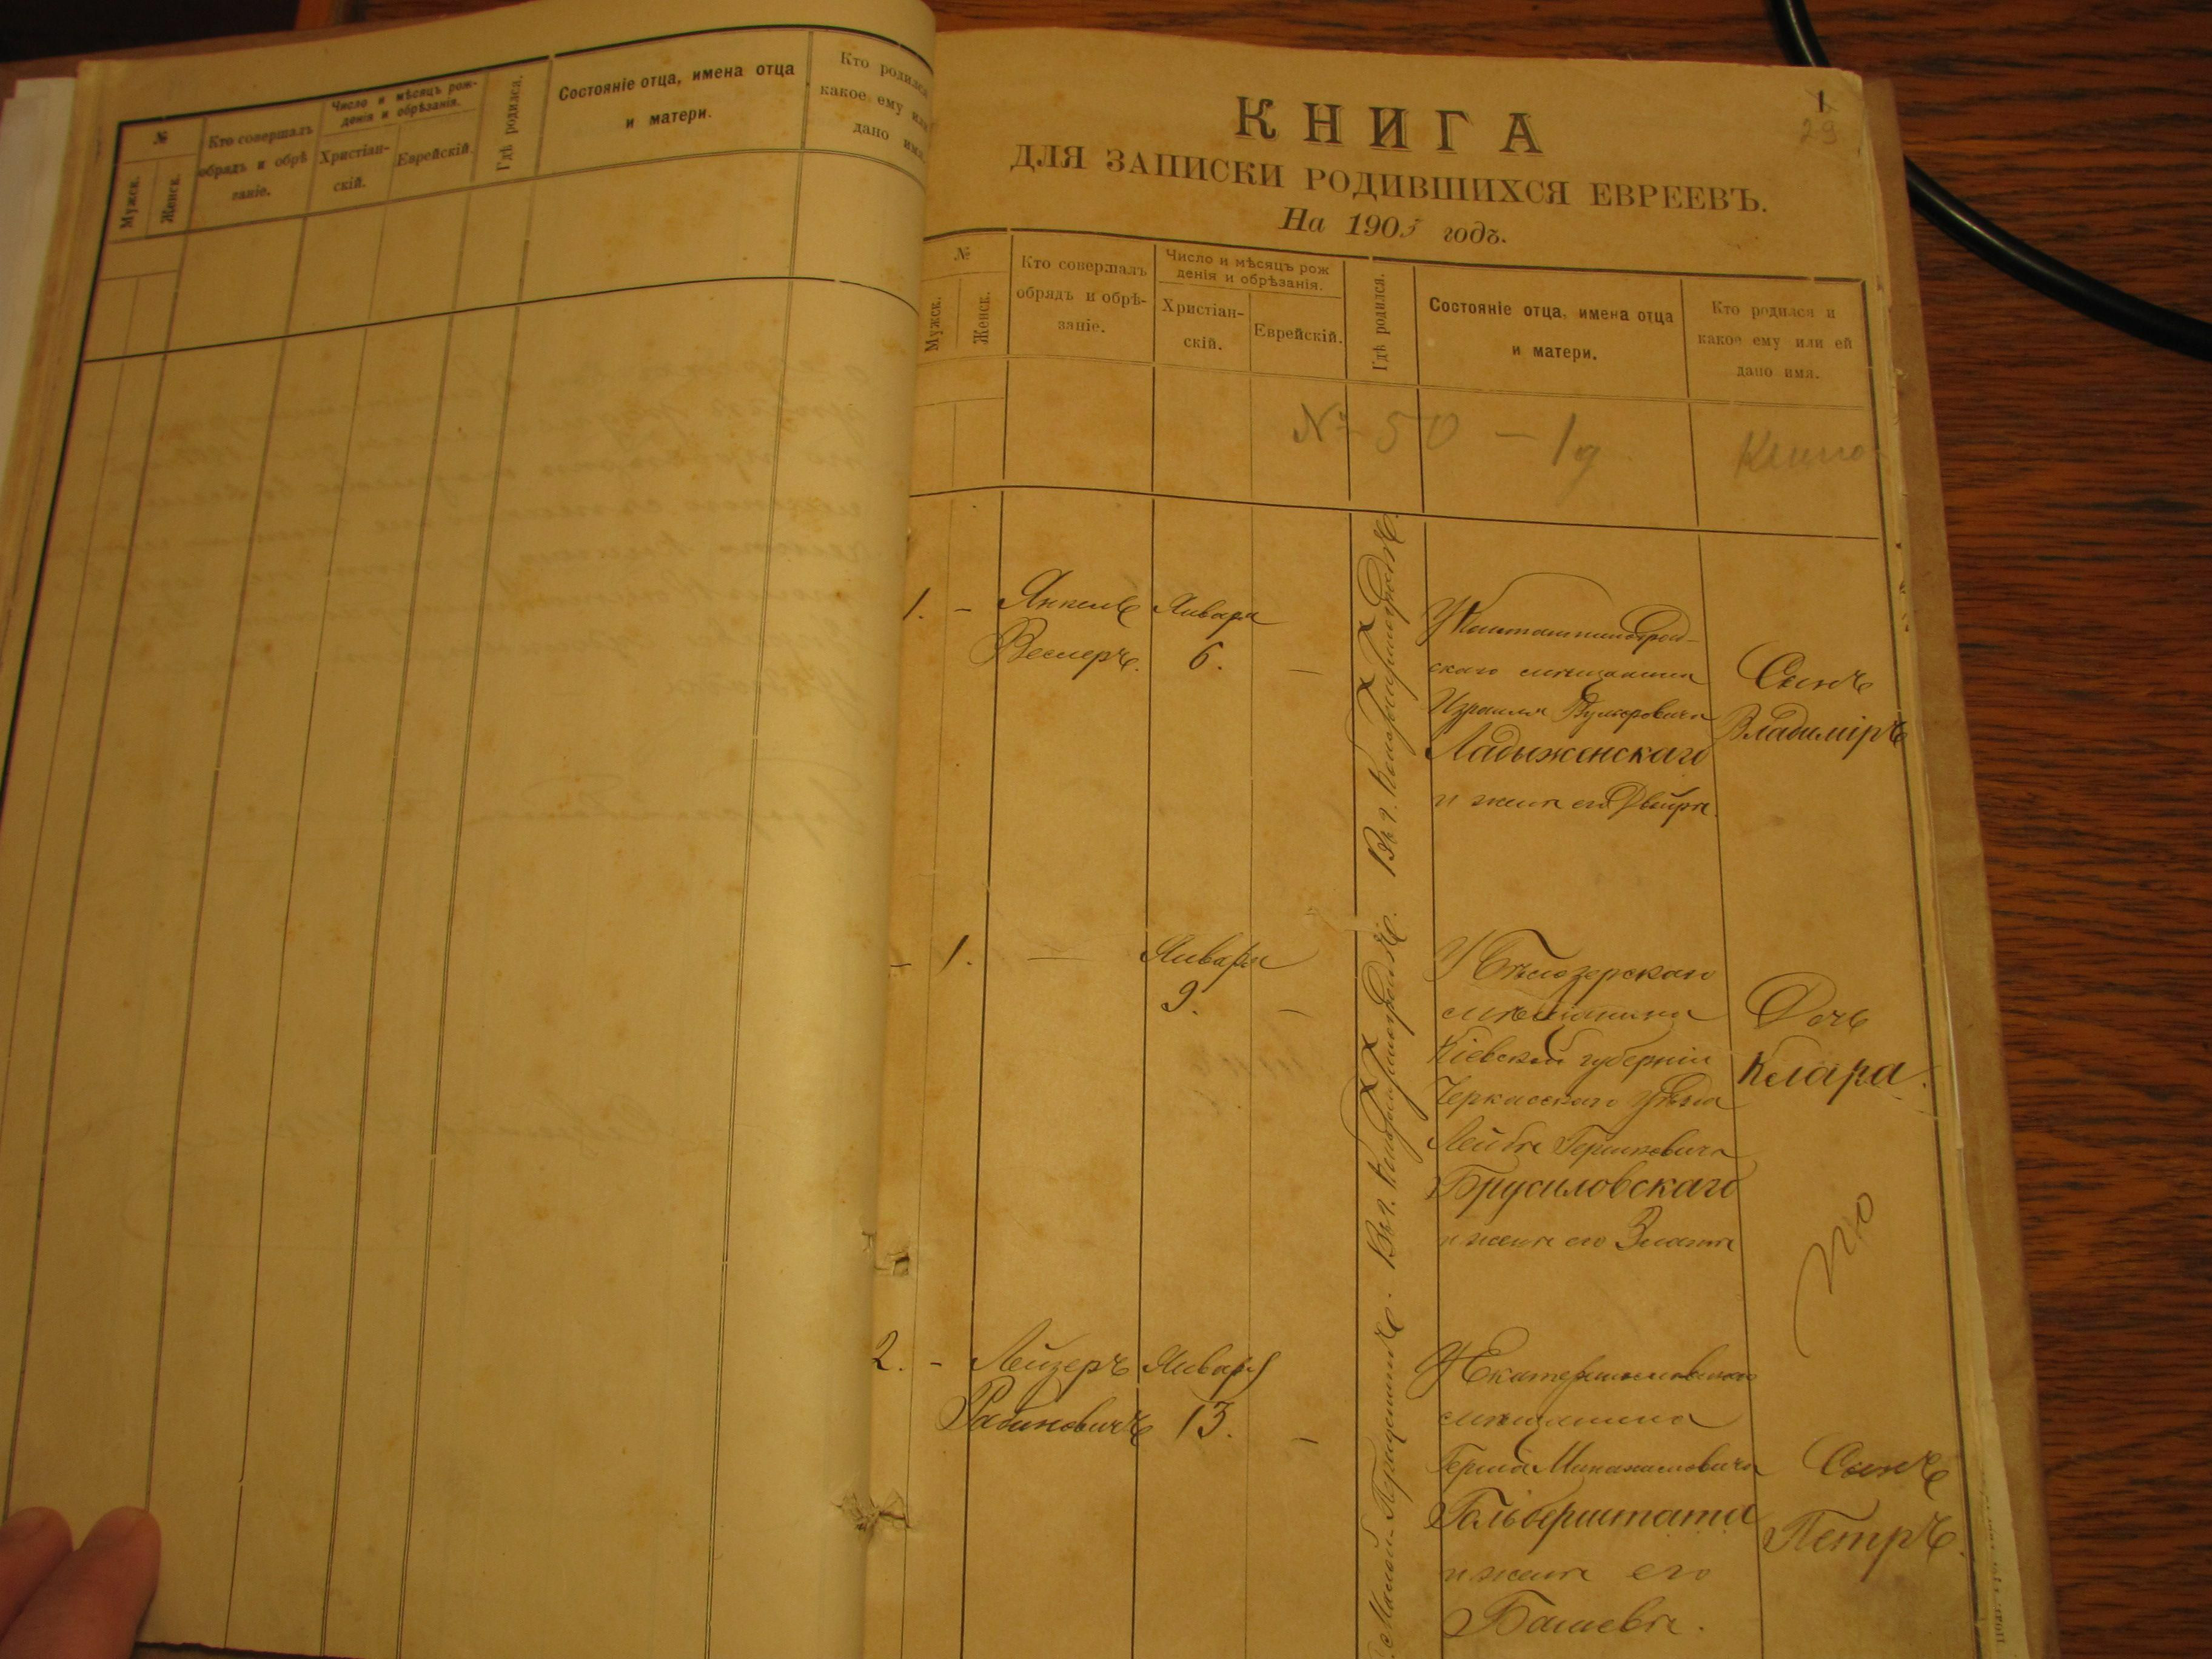 №
Мужск.
Женск.
Кто совершалъ
обрядъ и обрѣ
заніе.
Число и мѣсяцъ рож-
денія и обрѣзанія.
Христіан-
скій.
Еврейскій.
Гдѣ родился.
Состояніе отца, имена отца
и матери.
Кто родился
какое ему или
дано имя.
1
29
КНИГА
ДЛЯ ЗАПИСКИ РОДИВШИХСЯ ЕВРЕЕВЪ.
На 1905 годъ.
№
Мужск.
Женск.
Кто совершалъ
обрядъ и обрѣ-
заніе.
Число и мѣсяцъ рож
денія и обрѣзанія.
Христіан-
скій.
Еврейскій.
Гдѣ родился.
Состояніе отца, имена отца
и матери.
Кто родился и
какое ему или ей
дано имя.
№ 50 —
1. —
Янкель
Веслеръ.
Января
6.
—
Въ г. Константиноградѣ.
У Константиноград-
скаго мѣщанина
Израиля
Ладыженскаго
и жены его Двейры.
Сынъ
Владиміръ
— 1.
—
Января
9.
—
Въ г. Константиноградѣ.
У Бѣлозерскаго
мѣщанина
Кіевской губерніи
Черкасскаго уѣзда
Лейбы Гершковича
Брусиловскаго
и жены его Златы
Дочь
Клара.
2. -
Лейзеръ
Рабиновичъ
Января
13.
—
У Екатеринославскаго
мѣщанина
Герша
Гальберштата
и жены его
Башевы.
Сынъ
Петръ.